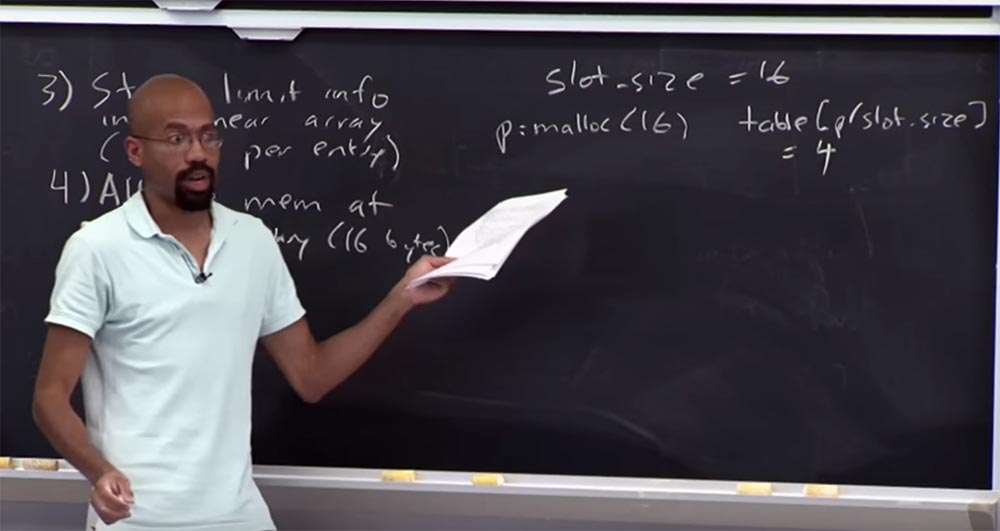 3) St limit info
in near array
( per entry)
4) Al mem at
ry (16 bytes)
slot_size = 16
p = malloc(16) table[p/slot_size]
= 4